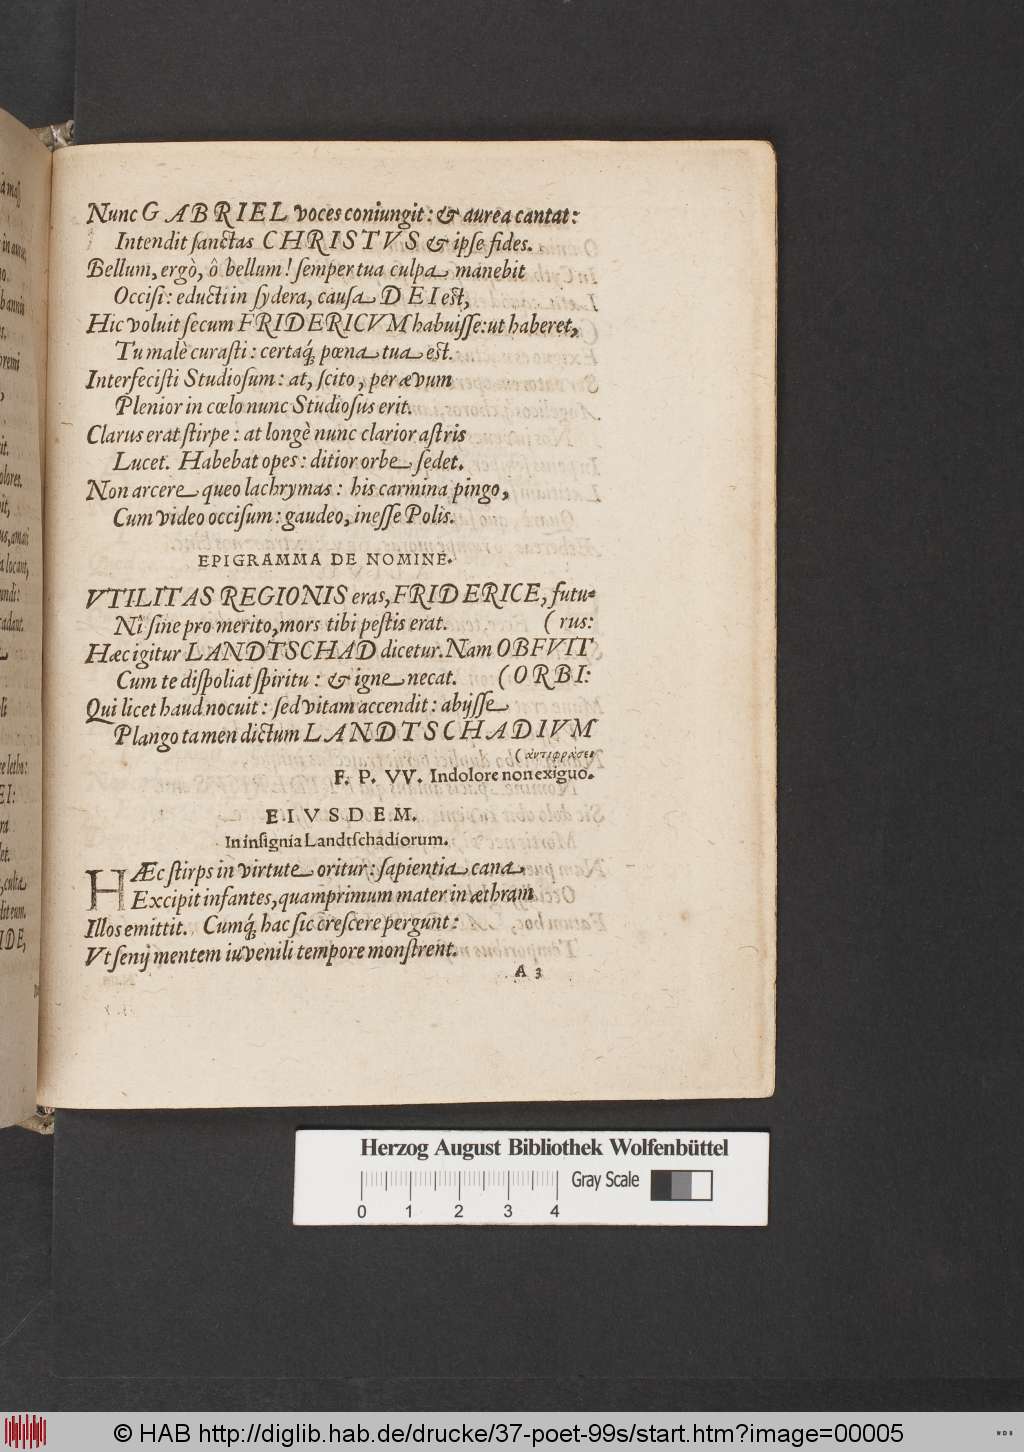 Nunc GABRIEL voces coniungit: & aurea cantat:
Intendit ſanctas CHRISTVS & ipſe fides.
Bellum, ergò, ô bellum! ſemper tua culpa manebit
Occiſi: educti in ſydera, cauſa DEI eſt,
Hic voluit ſecum FRIDERICVM habuiſſe: ut haberet,
Tu malè curaſti: certaq́; pœna tua eſt.
Interfeciſti Studioſum: at, ſcito, per ævum
Plenior in cœlo nunc Studioſus erit.
Clarus erat ſtirpe: at longè nunc clarior aſtris
Lucet. Habebat opes: ditior orbe ſedet.
Non arcere queo lachrymas: his carmina pingo,
Cum video occiſum: gaudeo, ineſſe Polis.
EPIGRAMMA DE NOMINE.
VTILITAS REGIONIS eras, FRIDERICE, futu-
Nî ſine pro merito, mors tibi peſtis erat. (rus:
Hæc igitur LANDTSCHAD dicetur. Nam OBFVIT
Cum te diſpoliat ſpiritu: & igne necat. (ORBI:
Qui licet haud nocuit: ſed vitam accendit: abijſſe
Plango tamen dictum LANDTSCHADIVM
(ἀντιφράσει
F. P. VV. In dolore non exiguo.
EIVSDEM.
In inſignia Landtſchadiorum.
HÆc ſtirps in virtute oritur: ſapientia cana
Excipit infantes, quamprimum mater in æthram
Illos emittit. Cumq́; hac ſic creſcere pergunt:
Vt ſenij mentem iuvenili tempore monſtrent.
A 3
Herzog August Bibliothek Wolfenbüttel
Gray Scale
0 1 2 3 4
© HAB http://diglib.hab.de/drucke/37-poet-99s/start.htm?image=00005